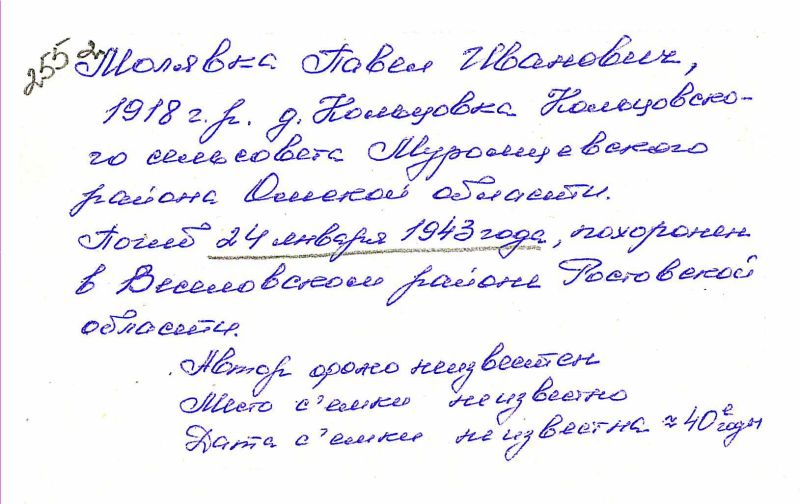 255 2
Молявка Павел Иванович,
1918 г.р. д. Кольцовка Кольцовско-
го сельсовета Муромцевского
района Омской области.
Погиб 24 января 1943 года, похоронен
в Веселовском районе Ростовской
области.
Автор фото неизвестен
Место с'емки неизвестно
Дата с'емки неизвестна ≈ 40е годы